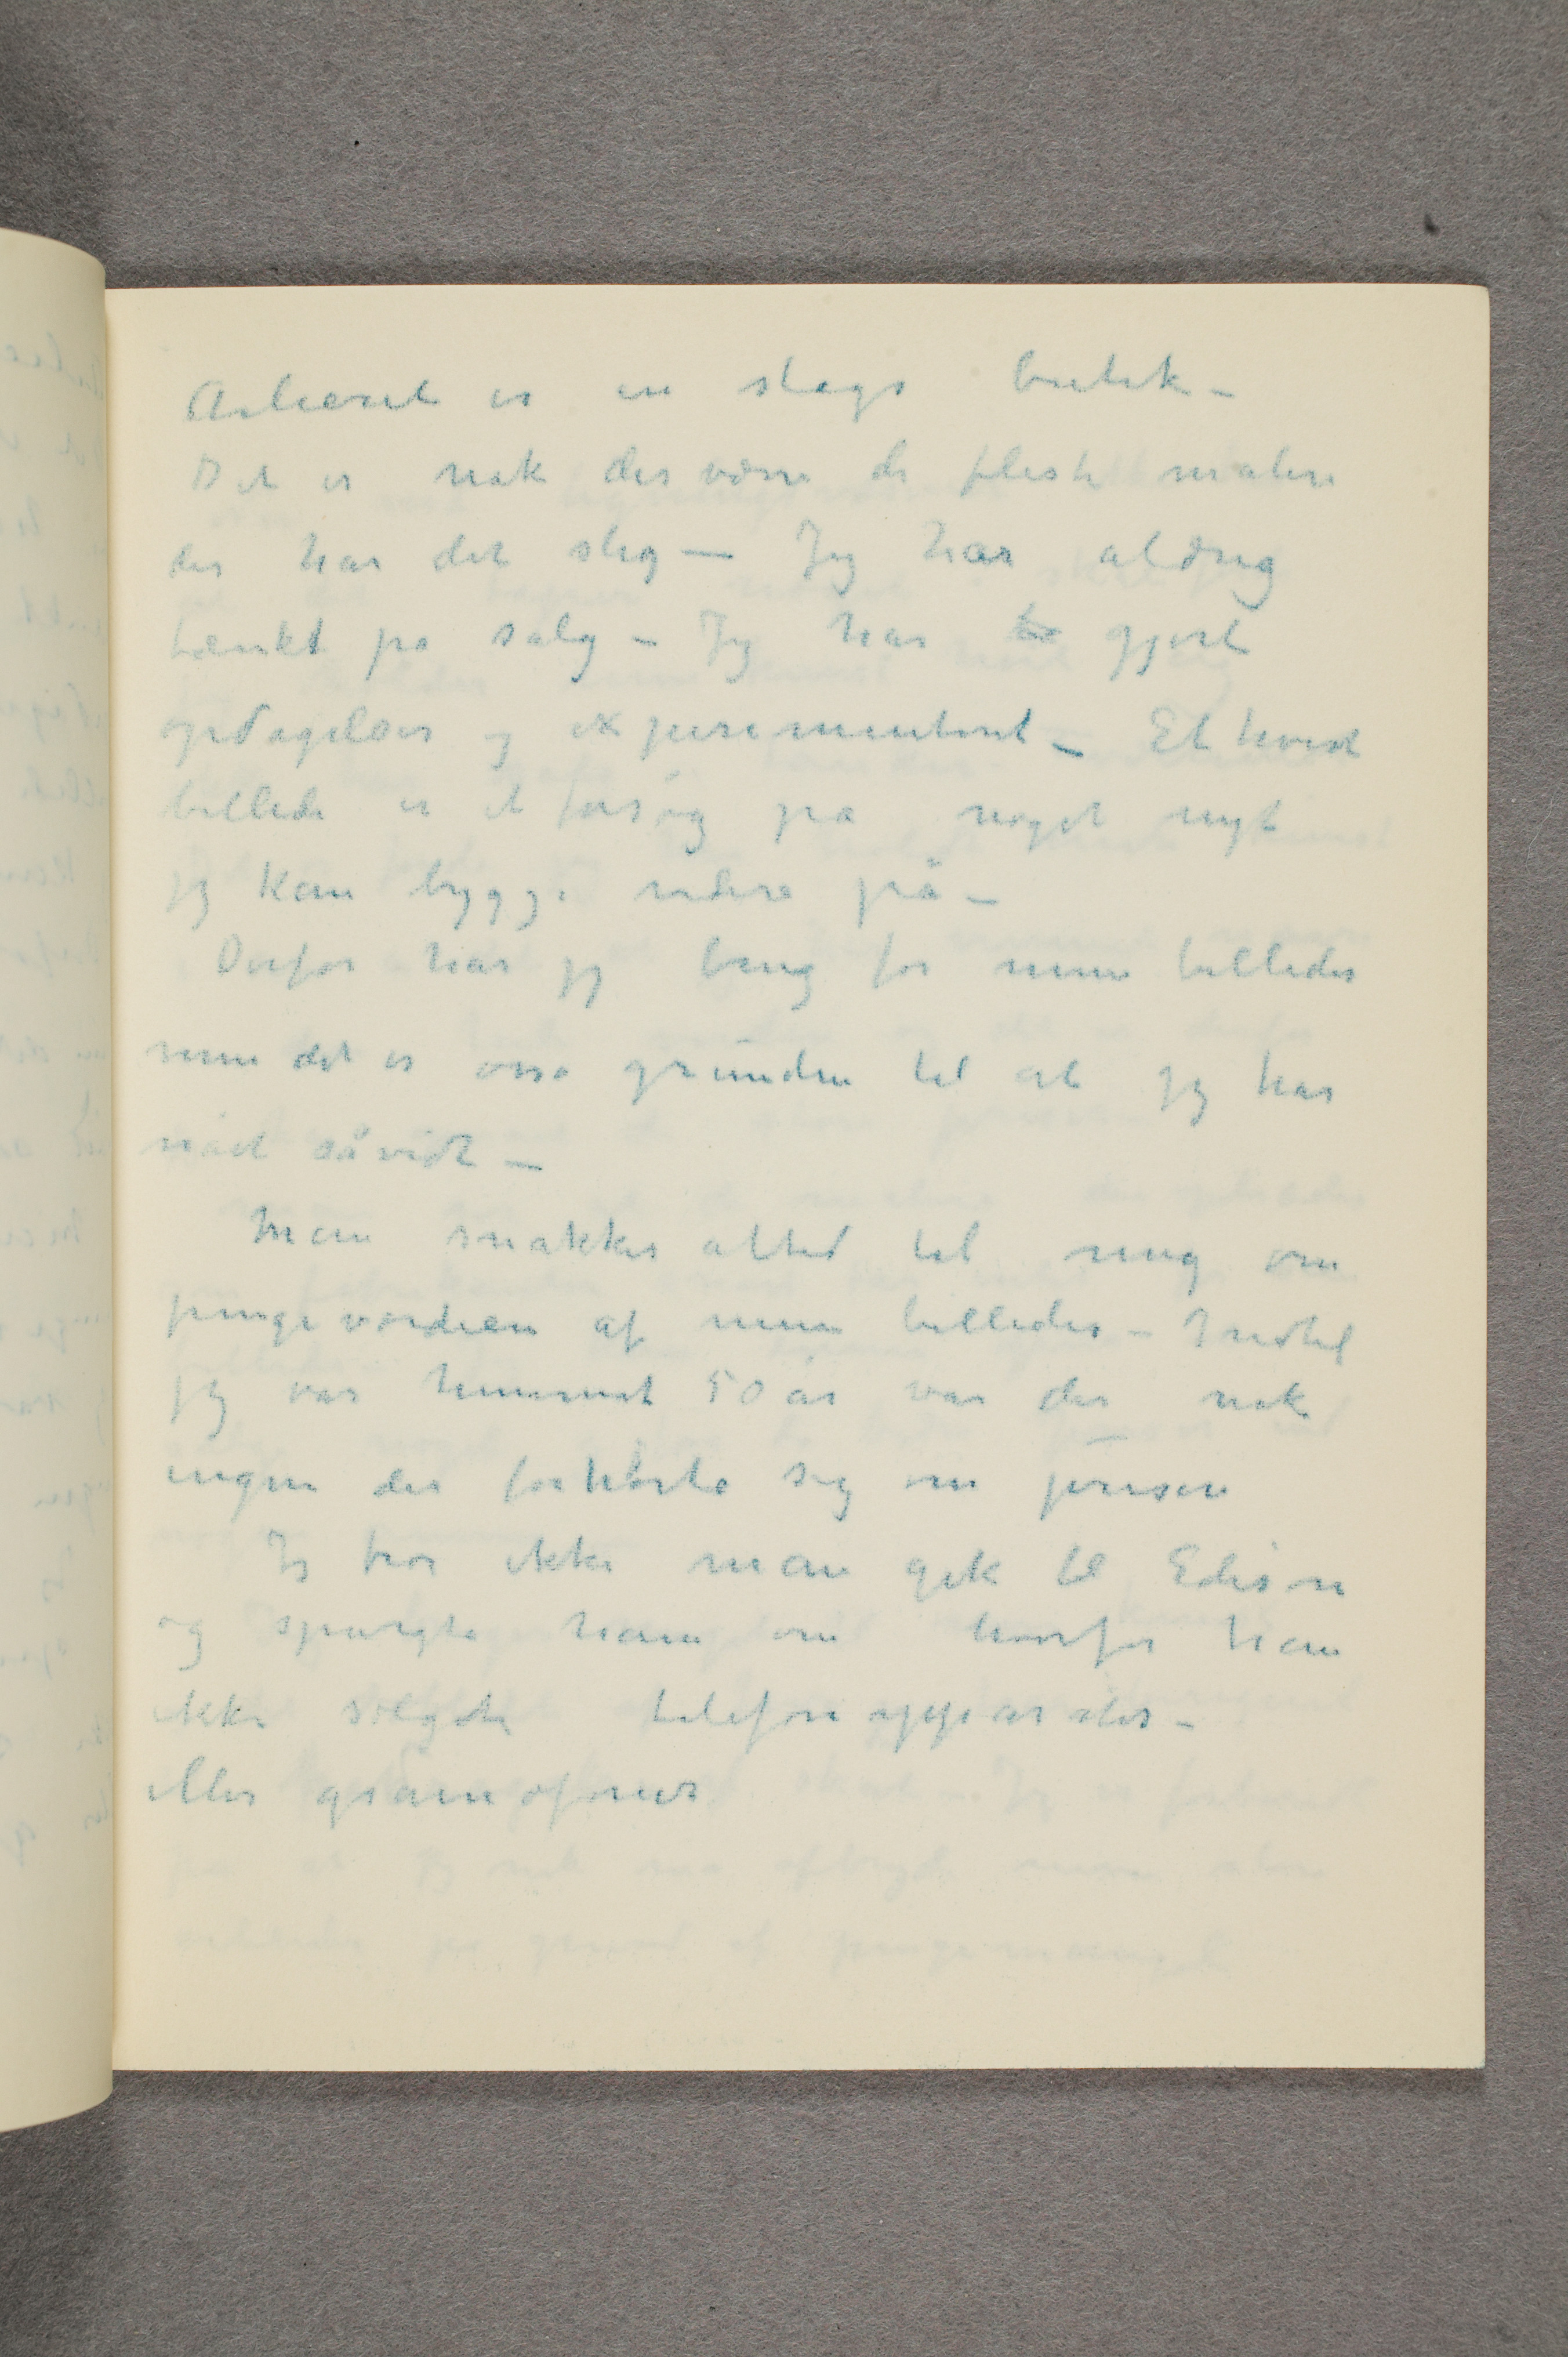 Atlieret er en slags butik –
Det er nok des værre de fleste malere
der har det slig — Jeg har aldrig
tænkt pa salg – Jeg har gjort
opdagelser og experimenteret – Et hvert
billede er et forsøg pa noget nyt
jeg kan bygge videre på –
Derfor har jeg brug for mine billeder
men det er osså grunden til at jeg har
nået såvidt –
Man snakker altid til mig om
pengeværdien af mine billeder – Indtil
jeg var hummet 50 år var der nok
ingen der forhørte sig om prisen
Jeg tror ikke man gik til Edison
og spurgte ham om hvorfor han
ikke solgte telefonapparater –
eller gramofoner